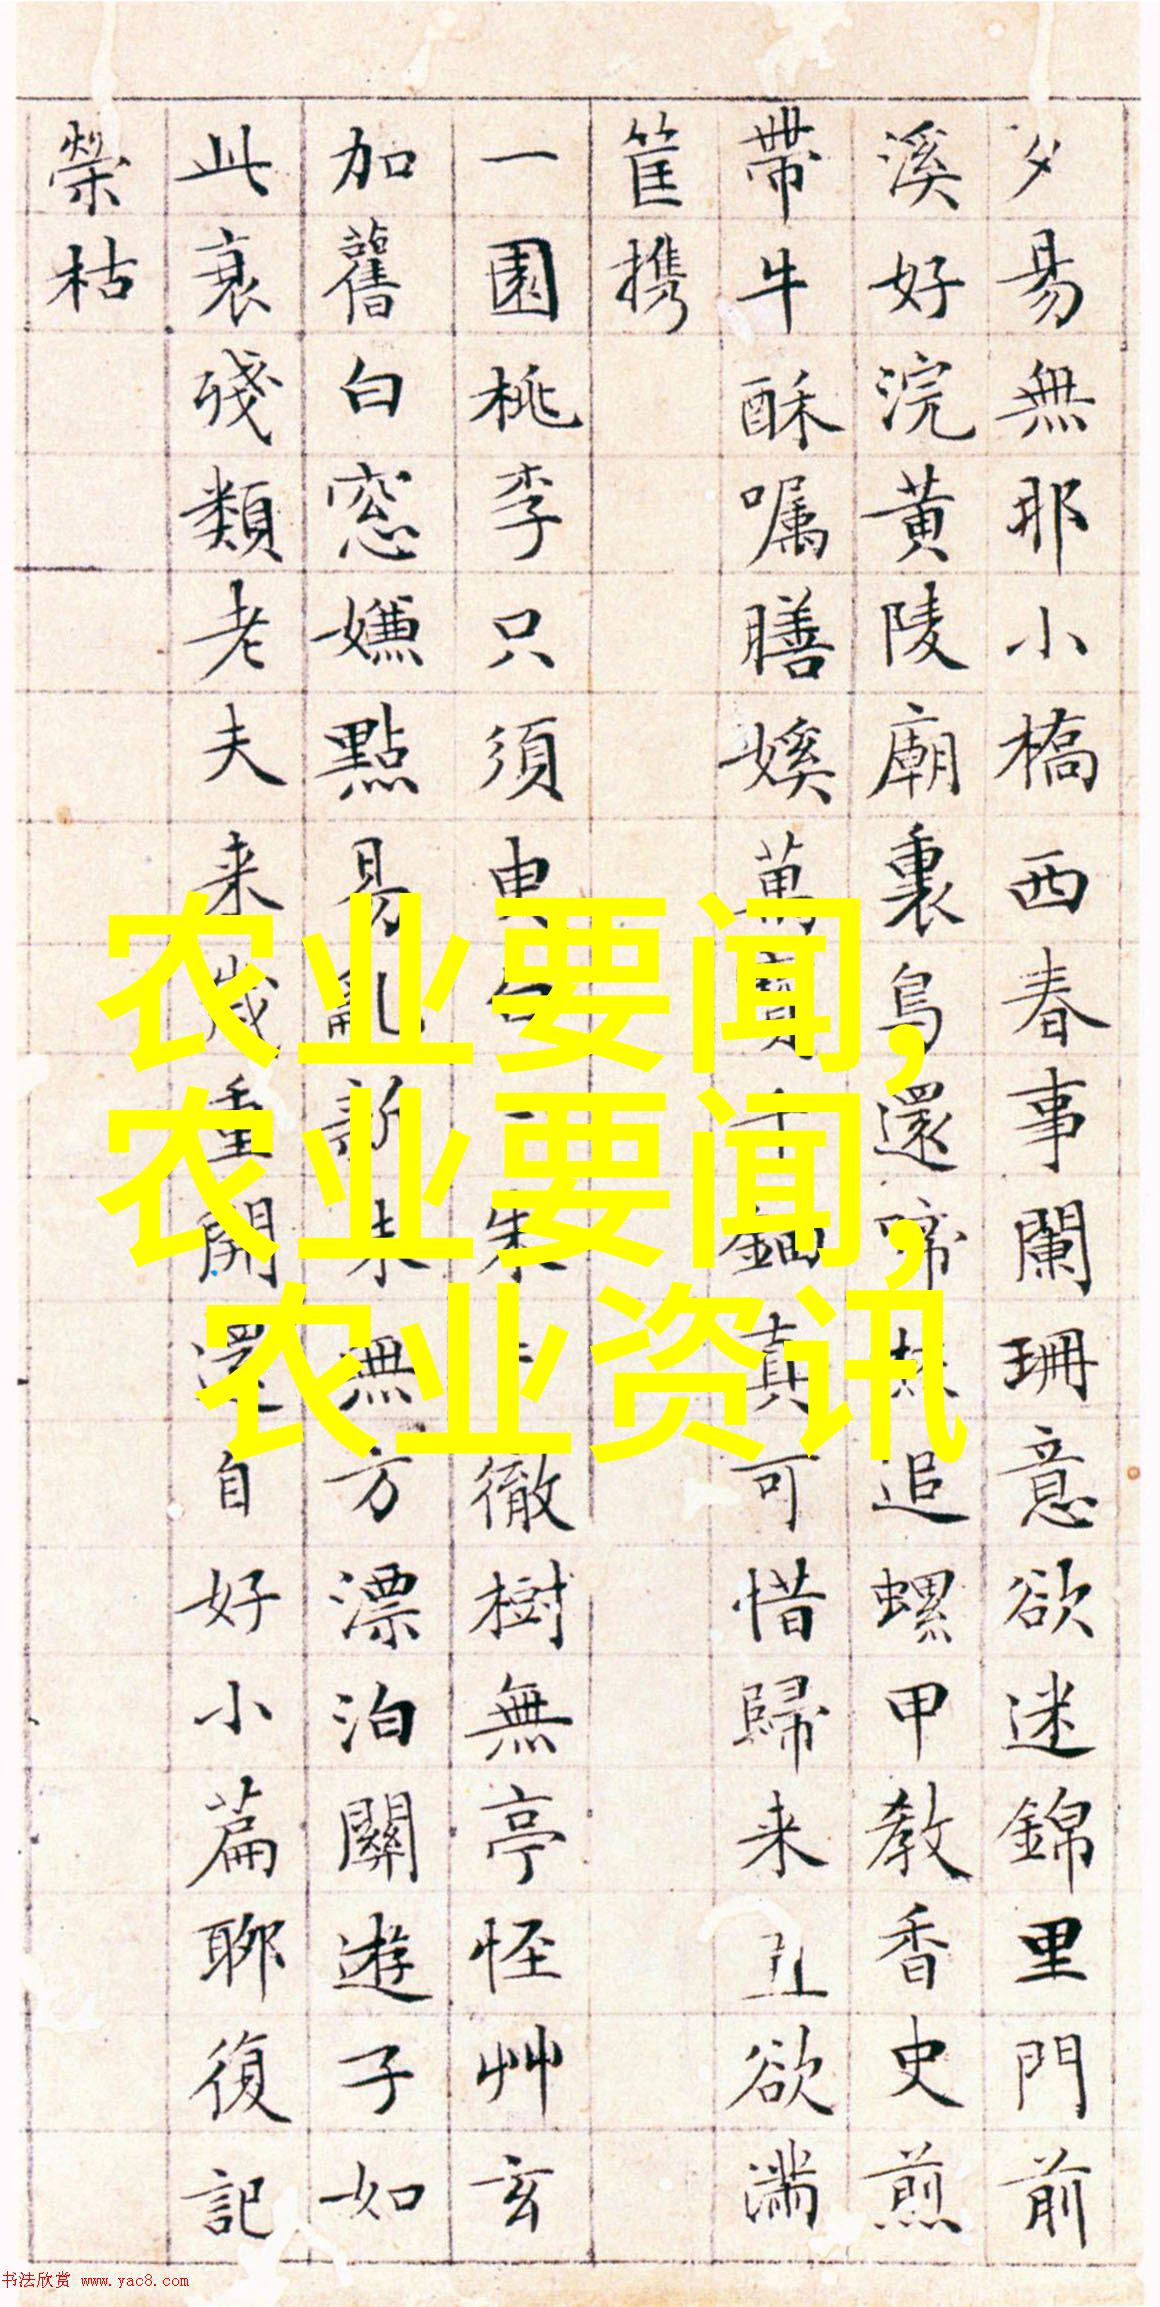 夕易無耶小橋西春事闌珊意欲迷錦里門前
溪好浣黄陵廟裏鳥還啼 追螺甲教香史煎
帶牛酥嘱膳媛萬寶千鈿真可惜歸来丑欲滿
筐携
一園桃李只須 徹樹無亭怪艸玄
加舊白窓嫌點易亂新朱無方漂泊關遊子如
此衰殘類老夫来歲重開還自好小篇聊復記
榮枯
农业要闻,
农业要闻,
农业资讯
书法欣赏 www.yac8.com